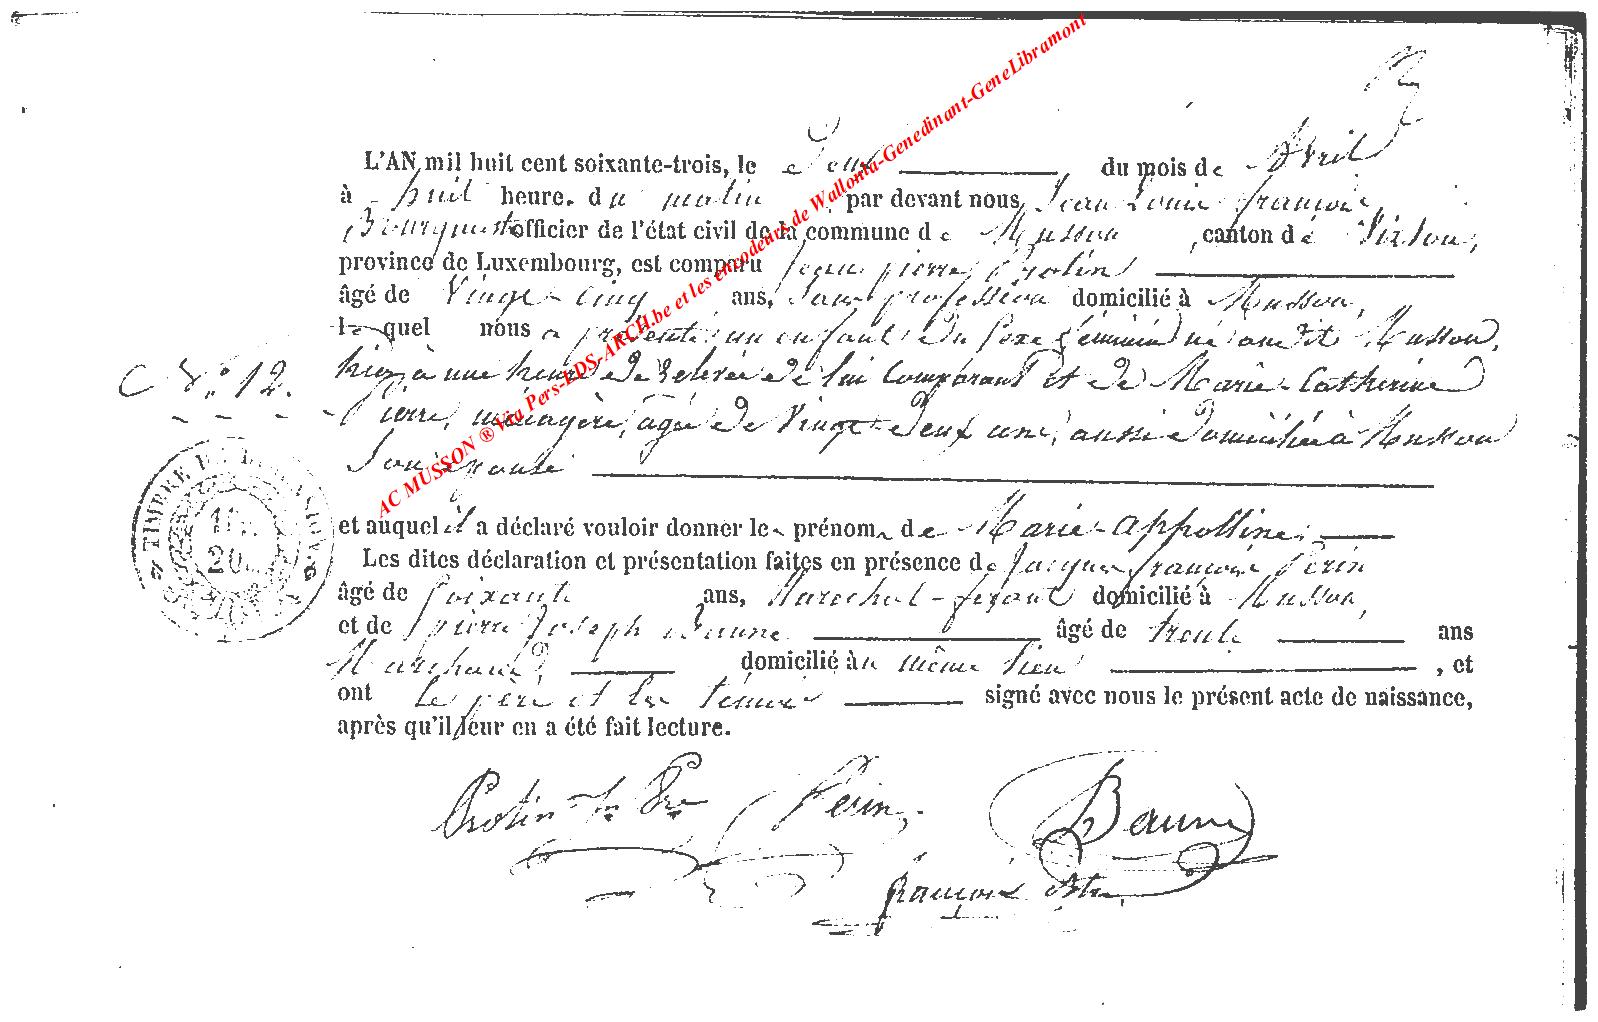 12
L'AN mil huit cent soixante-trois, le Deux du mois de Avril
à huit heure. du matin par devant nous Jean Louis françois
Bourguet officier de l'état civil de la commune de Musson, canton de Virton,
province de Luxembourg, est comparu Jean pierre Protin
âgé de Vingt-cinq ans, Sans profession domicilié à Musson,
lequel nous a présenté un enfant du sexe féminin né audit Musson,
hier à une heure de relevée de lui comparant et de Marie-Catherine
Pierre, ménagère, agée de Vingt-deux ans, aussi domiciliée à Musson
Son épouse
N° 12.
TIMBRE
20
AC MUSSON ® Via Pers-EDS-ARCH.be et les encodeurs de Wallonia-Genedinant-GeneLibramont
et auquel il a déclaré vouloir donner le prénom de Marie-appolline;
Les dites déclaration et présentation faites en présence de Jacques françois Perin
âgé de Soixante ans, Marechal-ferant domicilié à Musson,
et de pierre Joseph Baune âgé de trente ans
Marchand domicilié au même lieu, et
ont le père et les témoins signé avec nous le présent acte de naissance,
après qu'il leur en a été fait lecture.
Protin Jn Pre Perin Baune
françois